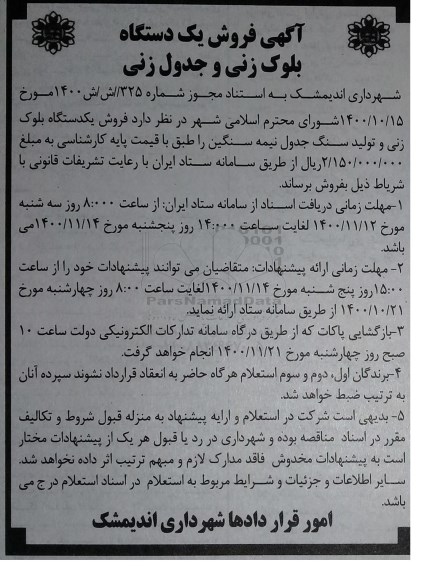 آگهی فروش یک دستگاه
بلوک زنی و جدول زنی
شهرداری اندیمشک به استناد مجوز شماره ۳۲۵/ش/ش۱۴۰۰مورخ
۱۴۰۰/۱۰/۱۵شورای محترم اسلامی شهر در نظر دارد فروش یکدستگاه بلوک
زنی و تولید سنگ جدول نیمه سنگین را طبق با قیمت پایه کارشناسی به مبلغ
۲/۱۵۰/۰۰۰/۰۰۰ریال از طریق سامانه ستاد ایران با رعایت تشریفات قانونی با
شریاط ذیل بفروش برساند.
۱-مهلت زمانی دریافت اسناد از سامانه ستاد ایران: از ساعت ۸:۰۰۰ روز سه شنبه
مورخ ۱۴۰۰/۱۱/۱۲ لغایت ساعت ۱۴:۰۰۰ روز پنجشنبه مورخ ۱۴۰۰/۱۱/۱۴می
باشد.
۲- مهلت زمانی ارائه پیشنهادات: متقاضیان می توانند پیشنهادات خود را از ساعت
۱۵:۰۰روز پنج شنبه مورخ ۱۴۰۰/۱۱/۱۴لغایت ساعت ۸:۰۰ روز چهارشنبه مورخ
۱۴۰۰/۱۰/۲۱ از طریق سامانه ستاد ارائه نماید.
ParsNamadData
۳-بازگشایی پاکات که از طریق درگاه سامانه تدارکات الکترونیکی دولت ساعت ۱۰
صبح روز چهارشنبه مورخ ۱۴۰۰/۱۱/۲۱ انجام خواهد گرفت.
۴-برندگان اول، دوم و سوم استعلام هرگاه حاضر به انعقاد قرارداد نشوند سپرده آنان
به ترتیب ضبط خواهد شد.
۵- بدیهی است شرکت در استعلام و ارایه پیشنهاد به منزله قبول شروط و تکالیف
مقرر در اسناد مناقصه بوده و شهرداری در رد یا قبول هر یک از پیشنهادات مختار
است به پیشنهادات مخدوش فاقد مدارک لازم و مبهم ترتیب اثر داده نخواهد شد.
سایر اطلاعات و جزئیات و شرایط مربوط به استعلام در اسناد استعلام درج می
باشد.
امور قرار دادها شهرداری اندیمشک